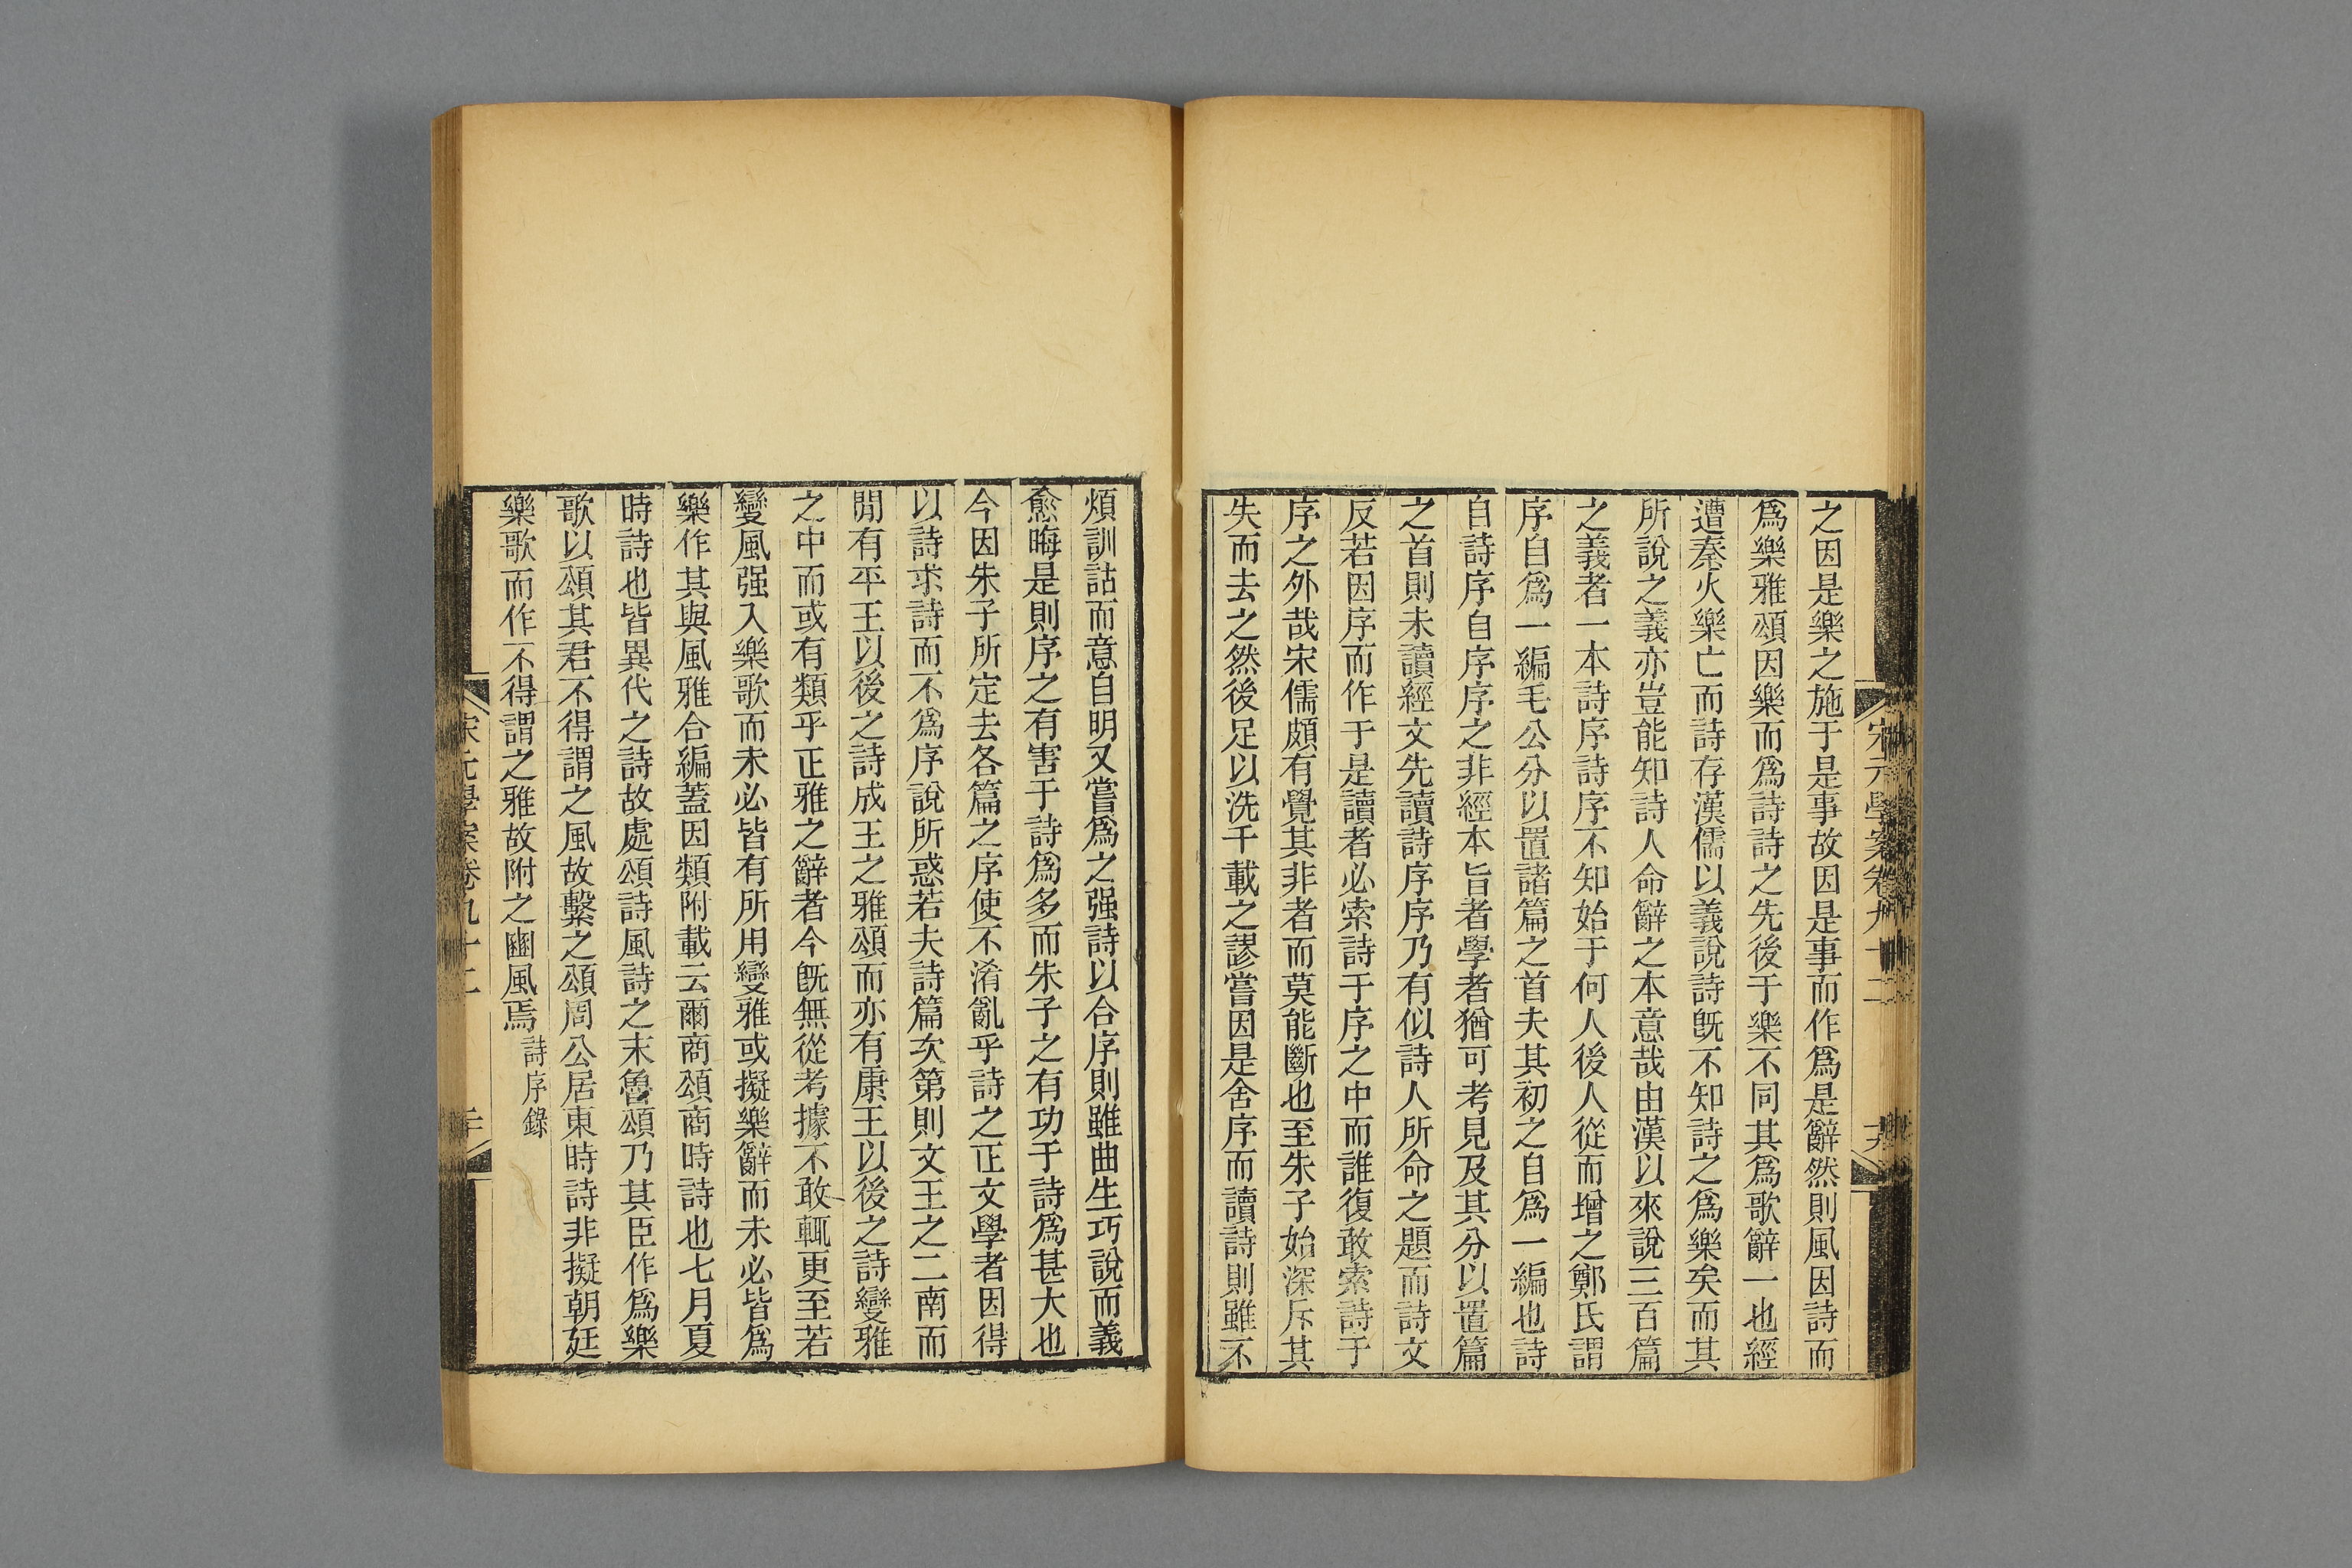 之因是樂之施于是事故因是事而作爲是辭然則風因詩而
爲樂雅頌因樂而爲詩詩之先後于樂不同其爲歌辭一也經
遭秦火樂亡而詩存漢儒以義說詩旣不知詩之爲樂矣而其
所說之義亦豈能知詩人命辭之本意哉由漢以來說三百篇
之義者一本詩序詩序不知始于何人後人從而增之鄭氏謂
序自爲一編毛公分以置諸篇之首夫其初之自爲一編也詩
自詩序自序序之非經本旨者學者猶可考見及其分以置篇
之首則未讀經文先讀詩序序乃有似詩人所命之題而詩文
反若因序而作于是讀者必索詩于序之中而誰復敢索詩于
序之外哉宋儒頗有覺其非者而莫能斷也至朱子始深斥其
失而去之然後足以洗千載之謬嘗因是舍序而讀詩則雖不
宋元學案卷九十二
煩訓詁而意自明又嘗爲之强詩以合序則雖曲生巧說而義
愈晦是則序之有害于詩爲多而朱子之有功于詩爲甚大也
今因朱子所定去各篇之序使不淆亂乎詩之正文學者因得
以詩求詩而不爲序說所惑若夫詩篇次第則文王之二南而
閒有平王以後之詩成王之雅頌而亦有康王以後之詩變雅
之中而或有類乎正雅之辭者今旣無從考據不敢輒更至若
變風强入樂歌而未必皆有所用變雅或擬樂辭而未必皆爲
樂作其與風雅合編蓋因類附載云爾商頌商時詩也七月夏
時詩也皆異代之詩故處頌詩風詩之末魯頌乃其臣作爲樂
歌以頌其君不得謂之風故繫之頌周公居東時詩非擬朝廷
樂歌而作不得謂之雅故附之豳風焉詩序錄
宋元學案卷九十二